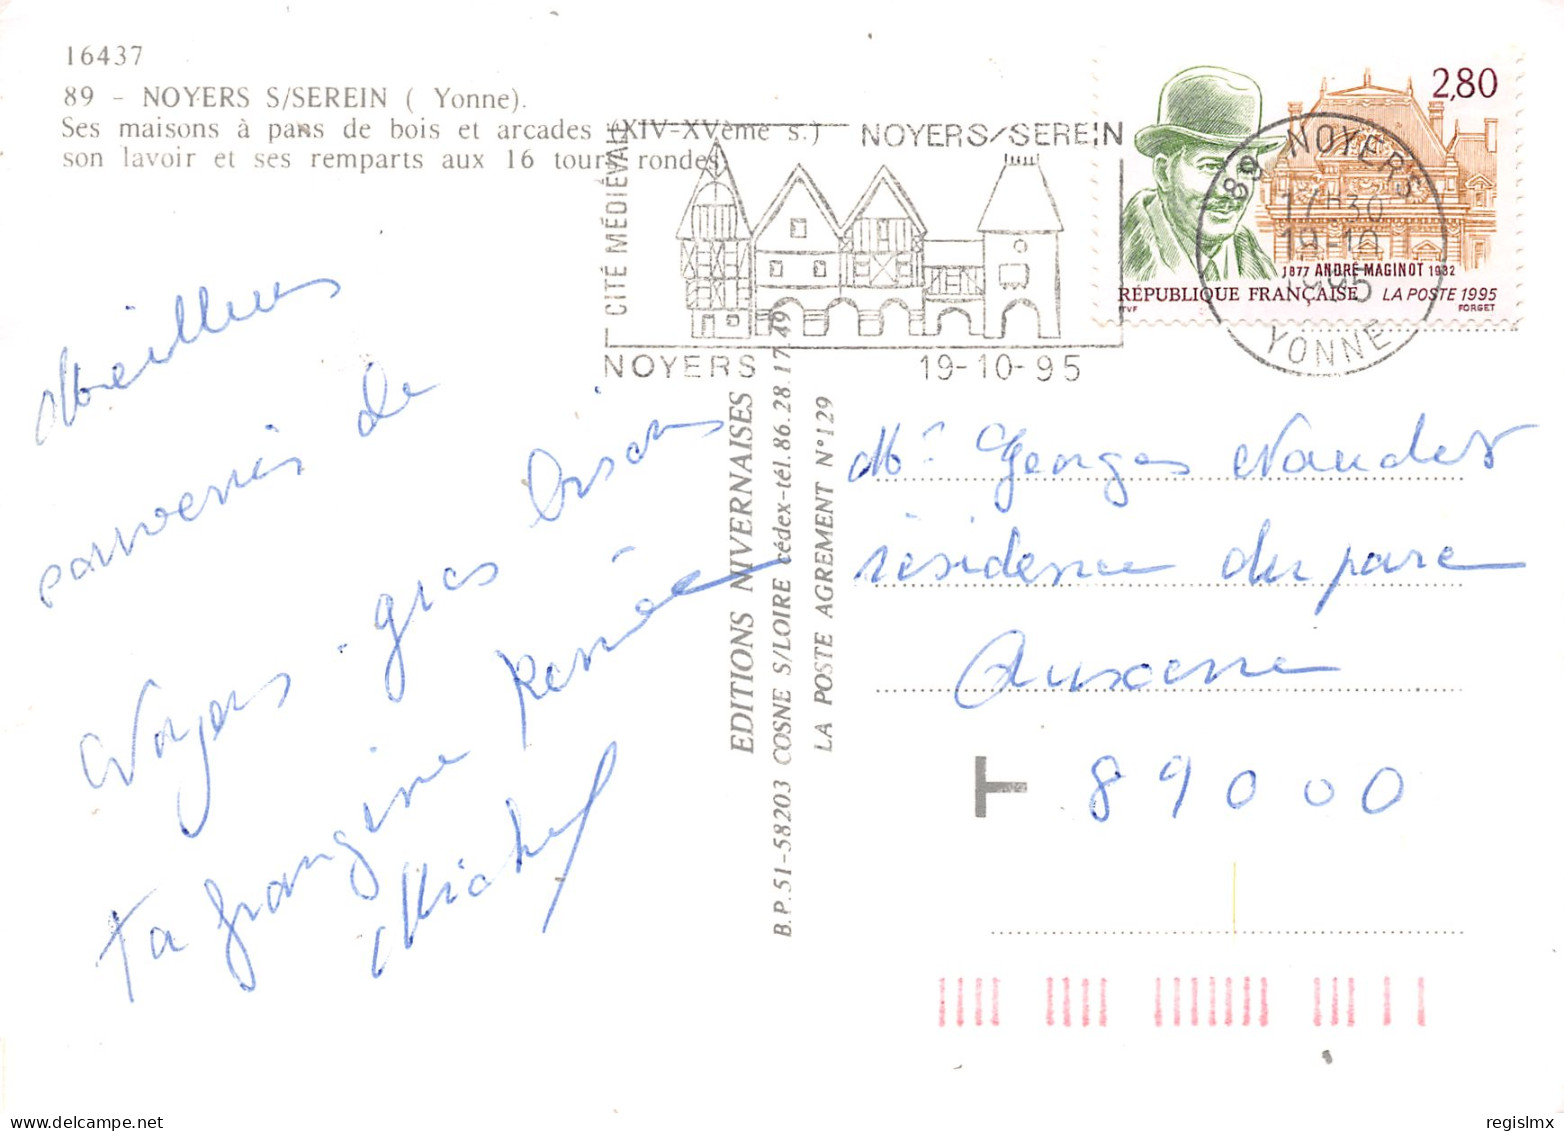 16437
89 - NOYERS S/SEREIN ( Yonne).
Ses maisons à pans de bois et arcades (XIV-XVème s.)
son lavoir et ses remparts aux 16 tours rondes.
CITÉ MÉDIÉVALE
NOYERS/SEREIN
NOYERS 19-10-95
2,80
1877 ANDRÉ MAGINOT 1932
RÉPUBLIQUE FRANÇAISE LA POSTE 1995
ITVF FORGET
89 NOYERS
17H30
19-10
1995
YONNE
Meilleurs
souvenirs de
Noyers. gros bisous
Ta frangine Renée
Michel
EDITIONS NIVERNAISES
B.P.51-58203 COSNE S/LOIRE cédex-tél.86.28.17.49
LA POSTE AGREMENT N°129
Mr Georges Naudet
résidence du parc
Auxerre
T 89000
regislmx